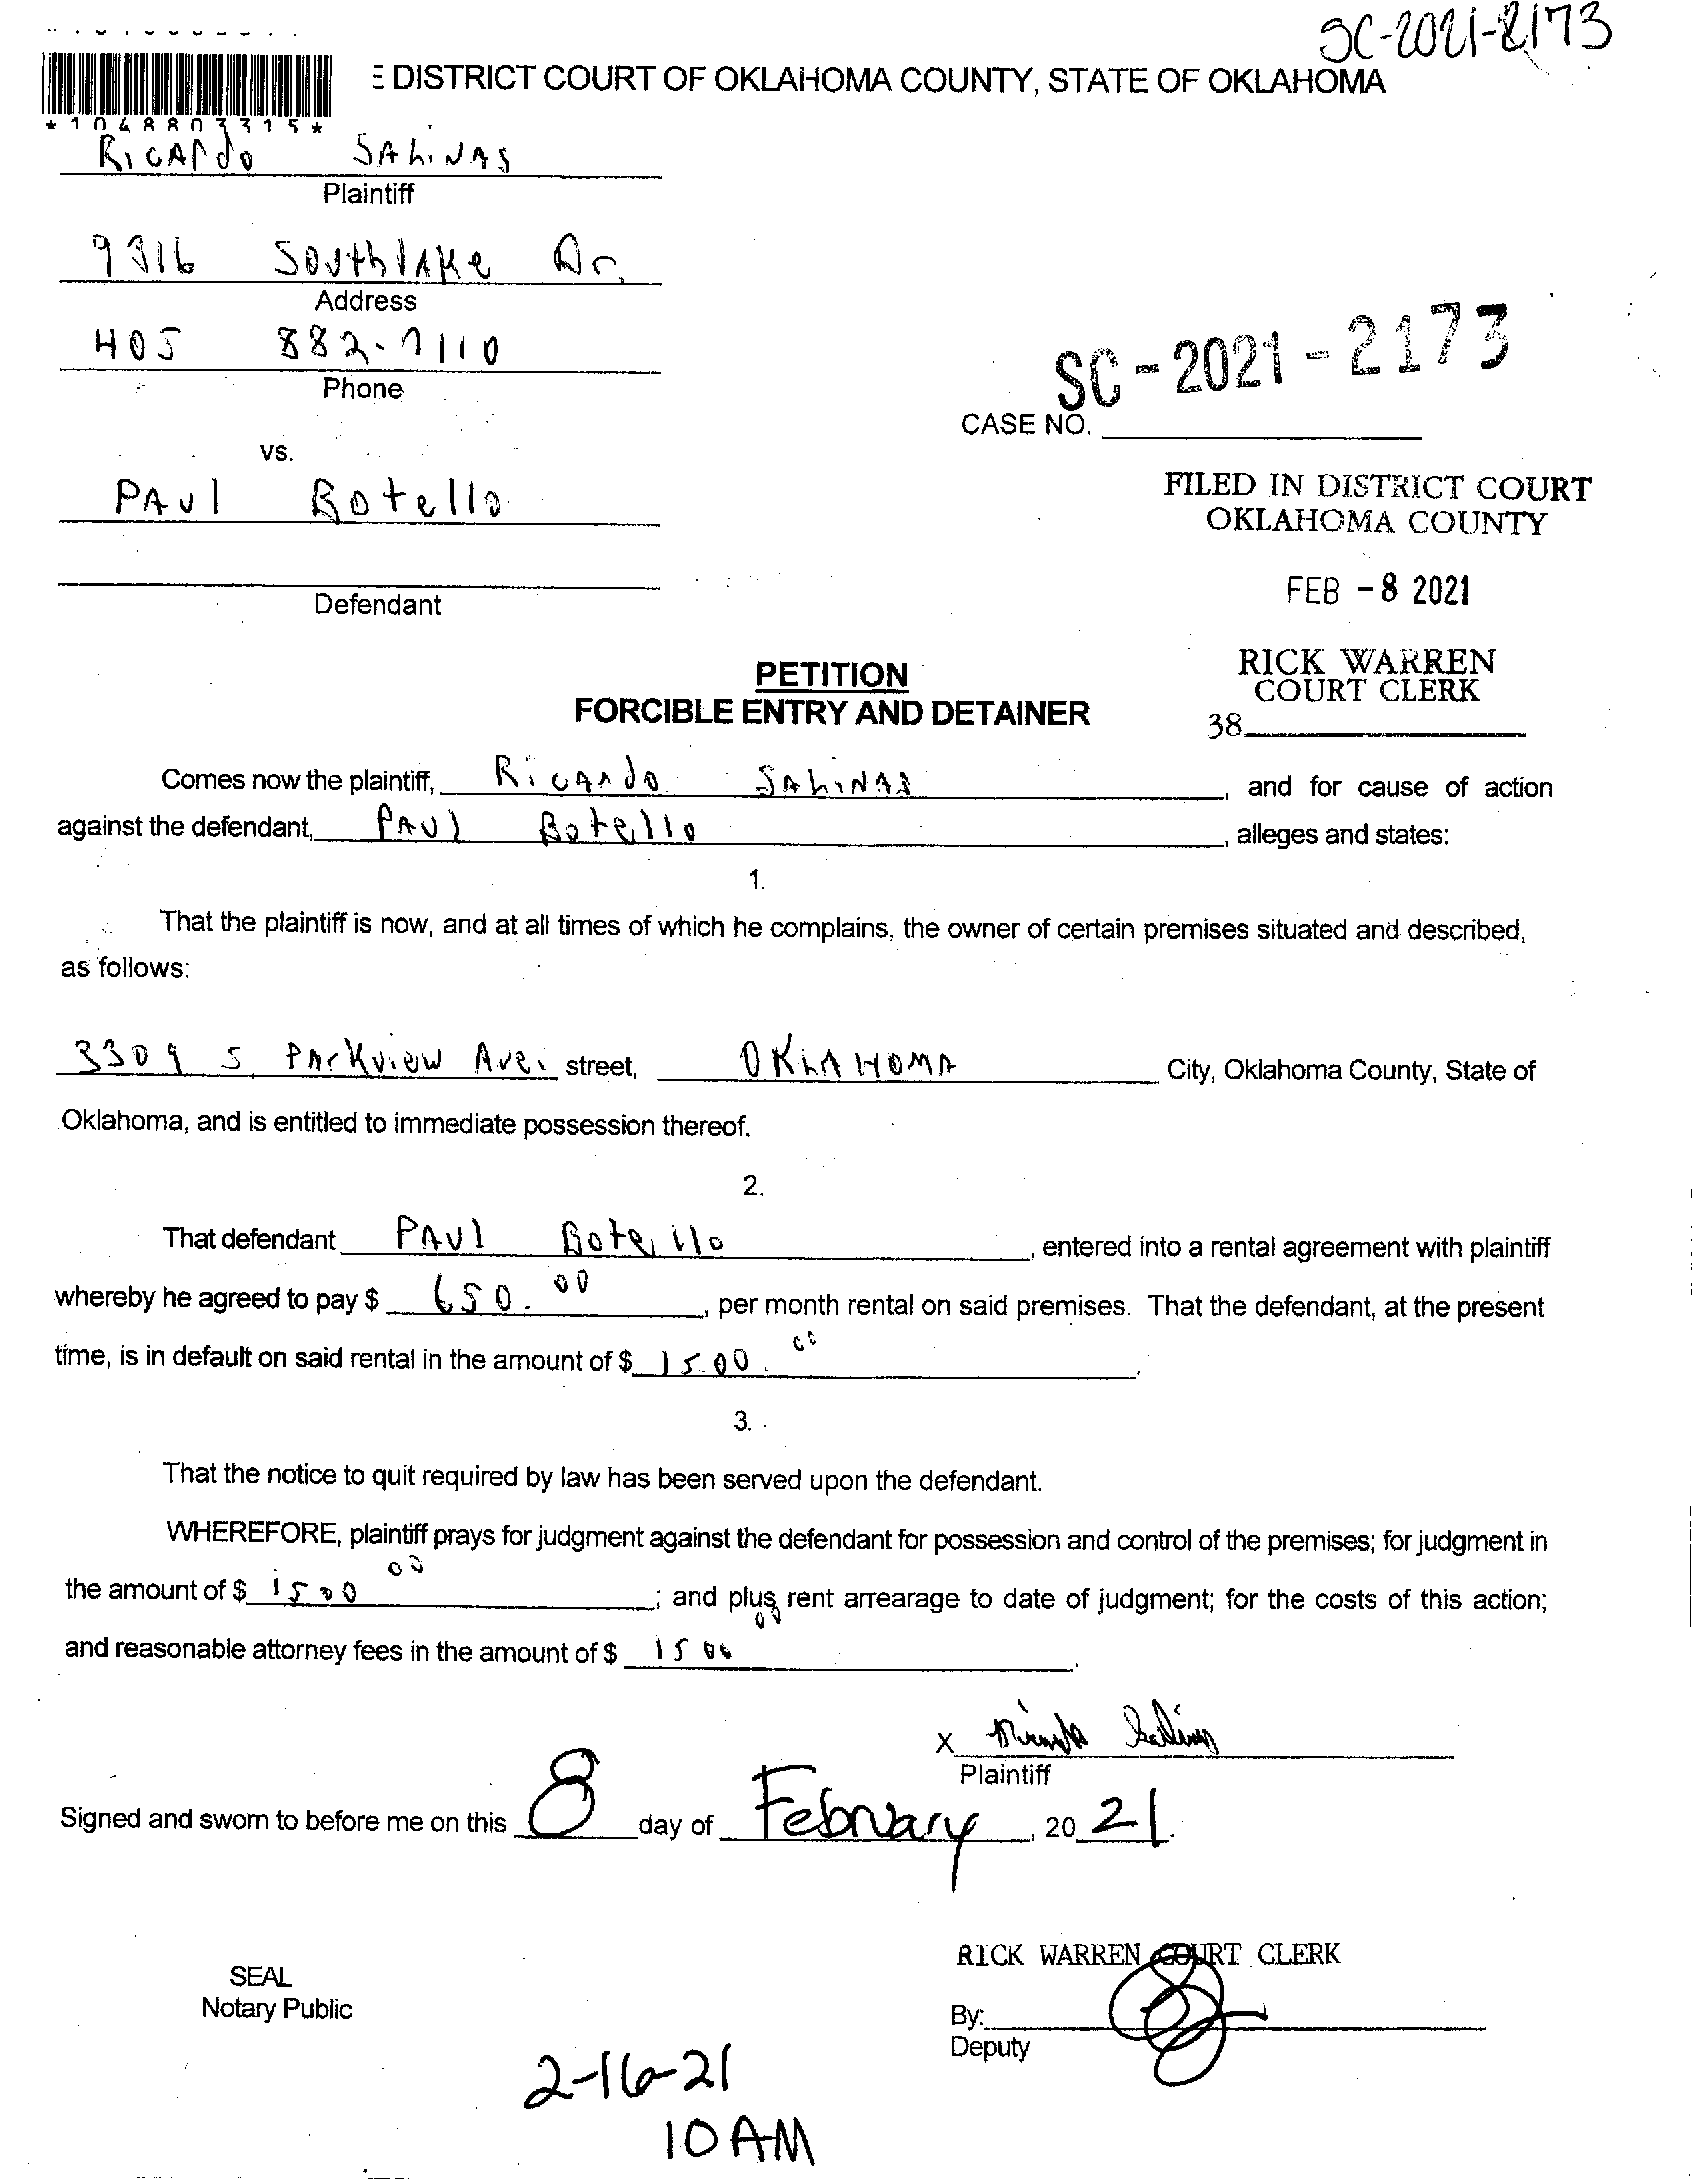 SC-2021-2173
DISTRICT COURT OF OKLAHOMA COUNTY, STATE OF OKLAHOMA
*1048803315*
RicArdo SALiNAS
Plaintiff
9316 SouthlAKe Dr.
Address
405 882-7110
Phone
SC-2021-2173
CASE NO.
vs.
PAul Botello
FILED IN DISTRICT COURT
OKLAHOMA COUNTY
FEB -8 2021
Defendant
RICK WARREN
COURT CLERK
38
PETITION
FORCIBLE ENTRY AND DETAINER
Comes now the plaintiff, RicArdo SALiNAS, and for cause of action
against the defendant, PAul Botello, alleges and states:
1.
That the plaintiff is now, and at all times of which he complains, the owner of certain premises situated and described,
as follows:
3309 S PArKview Ave. street, OKLAHOMA City, Oklahoma County, State of
Oklahoma, and is entitled to immediate possession thereof.
2.
That defendant PAul Botello, entered into a rental agreement with plaintiff
whereby he agreed to pay $ 650.00, per month rental on said premises. That the defendant, at the present
time, is in default on said rental in the amount of $ 1500.00.
3.
That the notice to quit required by law has been served upon the defendant.
WHEREFORE, plaintiff prays for judgment against the defendant for possession and control of the premises; for judgment in
the amount of $ 1500 00; and plus rent arrearage to date of judgment; for the costs of this action;
and reasonable attorney fees in the amount of $ 1500 00.
X
Plaintiff
Signed and sworn to before me on this 8 day of February, 20 21.
RICK WARREN COURT CLERK
SEAL
Notary Public
By:
Deputy
2-16-21
10 AM